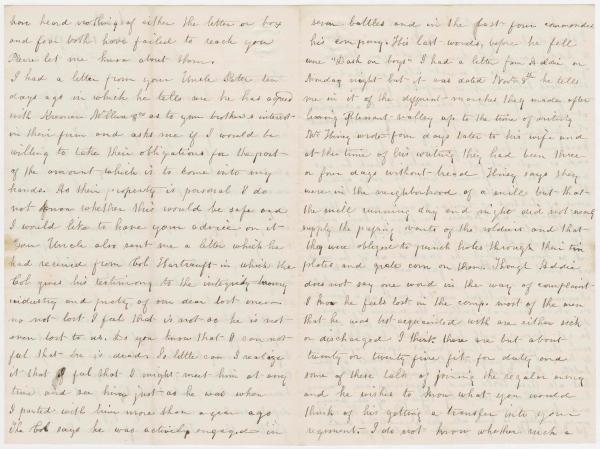 have heard nothing of either the letter or box
and fear both have failed to reach you
Please let me know about them.
I had a letter from your Uncle Peter ten
days ago in which he tells me he has agreed
with Brother as to your brothers interest
in their firm and asks me if I would be
willing to take their obligations for the part
of the amount which is to come into my
hands. As their property is personal I do
not know whether this would be safe and
I would like to have your advice on it
Your Uncle also sent me a letter which he
had received from Col Hartranft in which the
Col gives his testimony to the integrity bravery
industry and piety of our dear lost one—
no not lost I feel that is not so he is not
even lost to us. Do you know that I can not
feel that he is dead. So little can I realize
it that I feel that I might meet him at any
time and see him just as he was when
I parted with him more than a year ago
The Col says he was actively engaged in
seven battles and in the last four commanded
his company. His last words, before he fell
were "Dash on boys" I had a letter from Addie on
Monday night but it was dated Nov. 8th he tells
me in it of the different marches they made after
leaving Pleasant valley up to the time of writing
Wm Thing wrote four days later to his wife and
at the time of his writing they had been three
or four days without bread Thing says they
were in the neighborhood of a mill but that
the mill running day and night did not nearly
supply the pressing wants of the soldiers and that
they were obliged to punch holes through their tin
plates and grate corn on them. Though Addie
does not say one word in the way of complaint
I know he feels lost in the comp. most of the men
that he was best acquainted with are either sick
or discharged I think there are but about
twenty or twenty five fit for duty and
some of these talk of joining the regular army
and he wishes to know what you would
think of his getting a transfer into your
regiment. I do not know whether such a